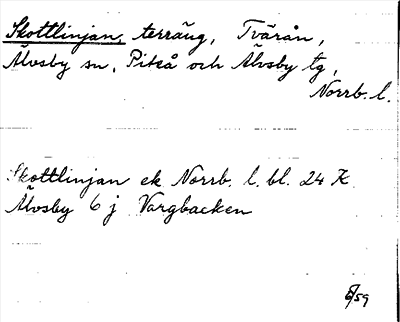 Skottlinjan, terräng, Tvärån,
Älvsby sn, Piteå och Älvsby tg,
Norrb. l.
Skottlinjan ek Norrb. l. bl. 24 K
Älvsby 6 j Vargbacken
6/59